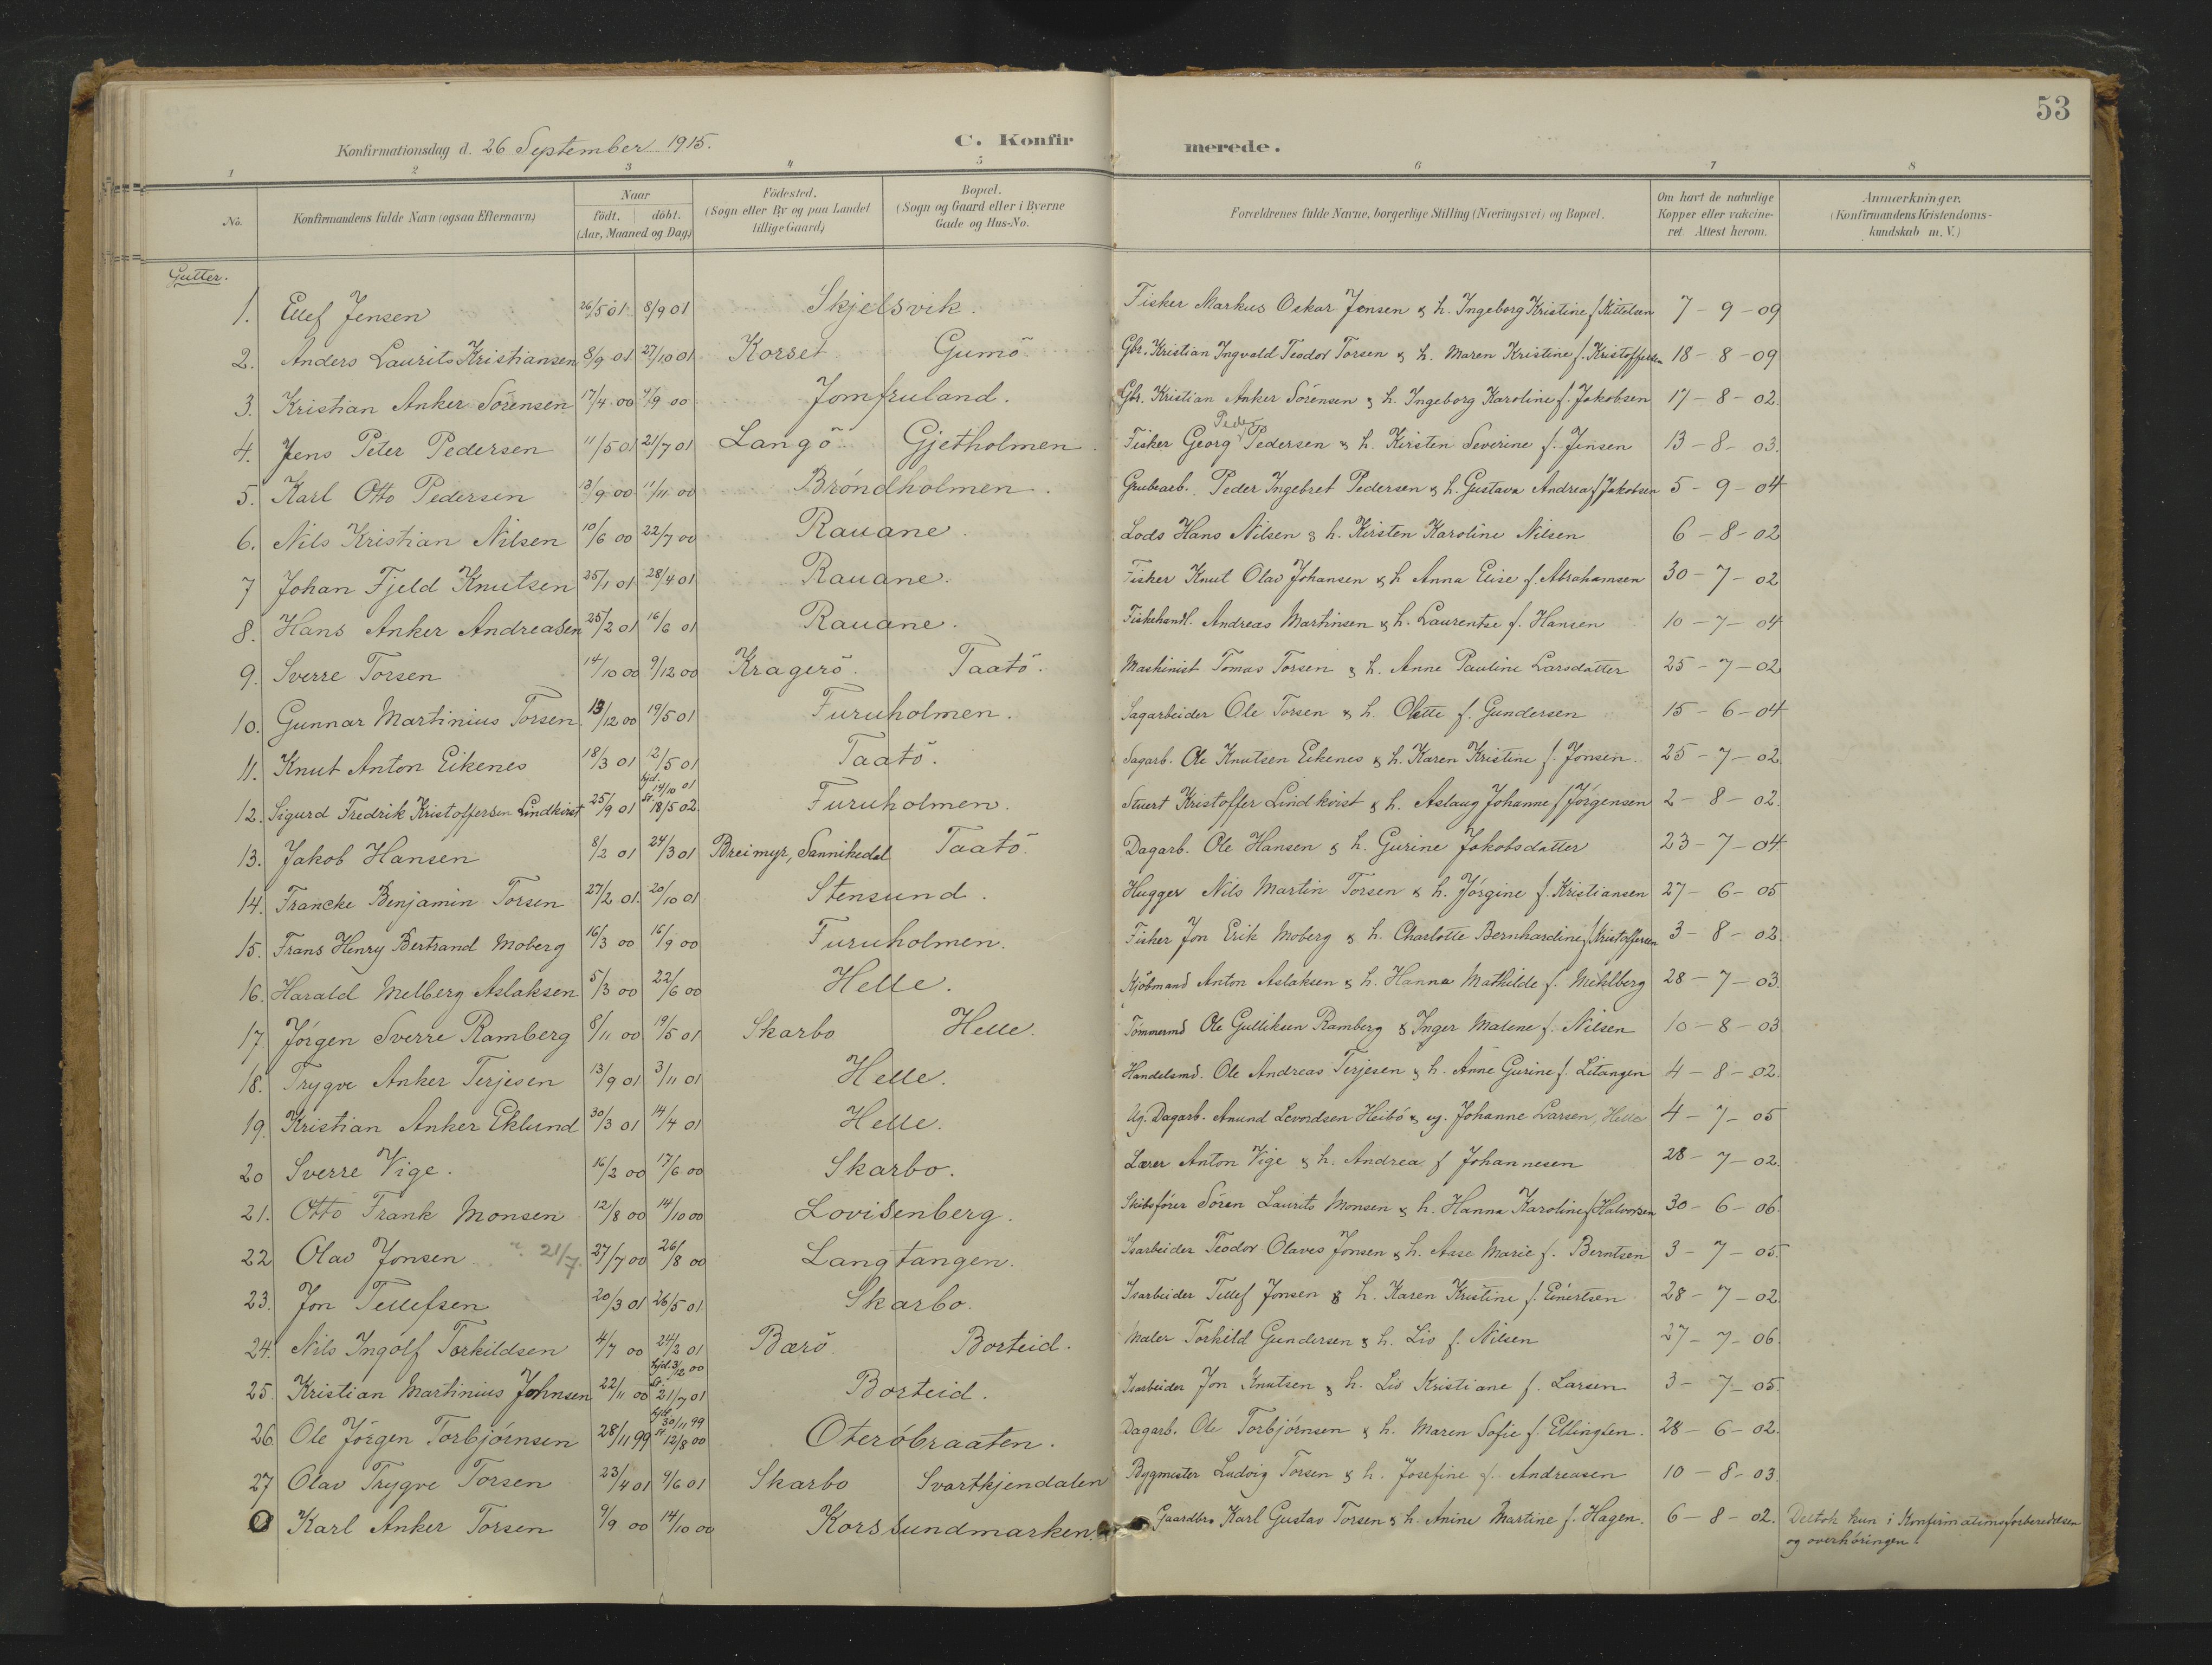 53
Konfirmationsdag d. 26 September 1915. C. Konfirmerede.
1 2 3 4 5 6 7 8
No. Konfirmandens fulde Navn (ogsaa Efternavn) Naar födt. döbt. (Aar, Maaned og Dag) Födested. (Sogn eller By og paa Landet tillige Gaard) Bopæl. (Sogn og Gaard eller i Byerne Gade og Hus-No. Forældrenes fulde Navne, borgerlige Stilling (Næringsvei) og Bopæl. Om havt de naturlige Kopper eller vakcineret Attest herom. Anmærkninger. (Konfirmandens Kristendomskundskab m. V.)
Gutter.
1. Ellef Jensen 26/5 01 8/9 01 Skjelsvik. Fisker Markus Oskar Jensen & h. Ingeborg Kristine f. Kittelsen 7-9-09
2. Anders Laurits Kristiansen 8/9 01 27/10 01 Korset Gumö. Gbr. Kristian Ingvald Teodor Torsen & h. Maren Kristine f. Kristoffersen 18-8-09
3. Kristian Anker Sörensen 17/4 00 9/9 00 Jomfruland. Gbr. Kristian Anker Sörensen & h. Ingeborg Karoline f. Jakobsen 17-8-02.
4. Jens Peter Pedersen 11/5 01 21/7 01 Langö. Gjetholmen. Fisker Georg Peder Pedersen & h. Kirsten Severine f. Jensen 13-8-03.
5. Karl Otto Pedersen 13/9 00 11/11 00 Bröndholmen. Grubearb. Peder Ingebret Pedersen & h. Gustava Andrea f. Jakobsen 5-9-04
6. Nils Kristian Nilsen 10/6 00 22/7 00 Rauane. Lods Hans Nilsen & h. Kirsten Karoline Nilsen 6-8-02
7 Johan Fjeld Knutsen 25/1 01 28/4 01 Rauane. Fisker Knut Olav Johansen & h. Anna Elise f. Abrahamsen 30-7-02
8. Hans Anker Andreasen 25/2 01 16/6 01 Rauane. Fiskehandl. Andreas Martinsen & h. Laurentse f. Hansen 10-7-04
9. Sverre Torsen 14/10 00 9/12 00 Kragerö. Taatö. Maskinist Tomas Torsen & h. Anne Pauline Larsdatter 25-7-02
10. Gunnar Martinius Torsen 13/12 00 19/5 01 Furuholmen. Sagarbeider Ole Torsen & h. Olette f. Gundersen 15-6-04
11. Knut Anton Eikenes 18/3 01 12/5 01 Taatö. Sagarb. Ole Knutsen Eikenes & h. Karen Kristine f. Jonsen. 25-7-02
12. Sigurd Fredrik Kristoffersen Lindkvist 25/9 01 hjd. 14/10 01 st. 18/5 02 Furuholmen. Stuert Kristoffer Lindkvist & h. Aslaug Johanne f. Jörgensen 2-8-02.
13. Jakob Hansen 8/2 01 24/3 01 Breimyr, Sannikedal Taatö. Dagarb. Ole Hansen & h. Gurine Jakobsdatter 23-7-04
14. Francke Benjamin Torsen 27/2 01. 20/10 01 Stensund. Hugger Nils Martin Torsen & h. Jörgine f. Kristiansen 27-6-05
15. Frans Henry Bertrand Moberg 16/3 00 16/9 00 Furuholmen. Fisker Jon Erik Moberg & h. Charlotte Bernhardine f. Kristoffersen 3-8-02.
16. Harald Melberg Aslaksen 5/3 00 22/6 00 Helle. Kjöbmand Anton Aslaksen & h. Hanna Mathilde f. Mehlberg 28-7-03.
17. Jörgen Sverre Ramberg 8/11 00 19/5 01 Skarbo Helle. Tömmermd Ole Gulliksen Ramberg & Inger Malene f. Nilsen 10-8-03
18. Trygve Anker Terjesen 13/9 01 3/11 01 Helle. Handelsmd. Ole Andreas Terjesen & h. Anne Gurine f. Litangen 4-8-02.
19. Kristian Anker Eklund 30/3 01 14/4 01 Helle. Ug. Dagarb. Anund Levordsen Heibö & ug. Johanne Larsen, Helle 4-7-05
20 Sverre Vige. 16/2 00 17/6 00 Skarbo. Lærer Anton Vige & h. Andrea f. Johannesen 28-7-02.
21. Otto Frank Monsen 12/8 00 14/10 00 Lovisenberg. Skibsförer Sören Laurits Monsen & h. Hanna Karoline f. Halvorsen 30-6-06.
22 Olav Jonsen 21/7. 27/7 00 26/8 00 Langtangen. Isarbeider Teodor Olaves Jonsen & h. Aase Marie f. Berntsen 3-7-05.
23. Jon Tellefsen 20/3 01 26/5 01 Skarbo. Isarbeider Tellef Jonsen & h. Karen Kristine f. Einertsen 28-7-02
24. Nils Ingolf Torkildsen 4/7 00 24/2 01 Bærö. Borteid. Maler Torkild Gundersen & h. Liv f. Nilsen 27-7-06.
25. Kristian Martinius Johnsen 22/11 00 hjd. 3/12 00 st. 21/7 01 Borteid. Isarbeider Jon Knutsen & h. Liv Kristiane f. Larsen 3-7-05.
26. Ole Jörgen Torbjörnsen 28/11 99 hjd. 30/11 99 st. 12/8 00 Oteröbraaten. Dagarb. Ole Torbjörnsen & h. Maren Sofie f. Ellingsen. 28-6-02.
27 Olav Trygve Torsen 23/4 01 9/6 01 Skarbo Svartkjendalen Bygmester Ludvig Torsen & h. Josefine f. Andreasen 10-8-03.
0 Karl Anker Torsen 9/9 00 14/10 00 Korssundmarken. Gaardbr. Karl Gustav Torsen & h. Anine Martine f. Hagen. 6-8-02. Deltok kun i Konfirmationsforberedelsen
og overhöringen.